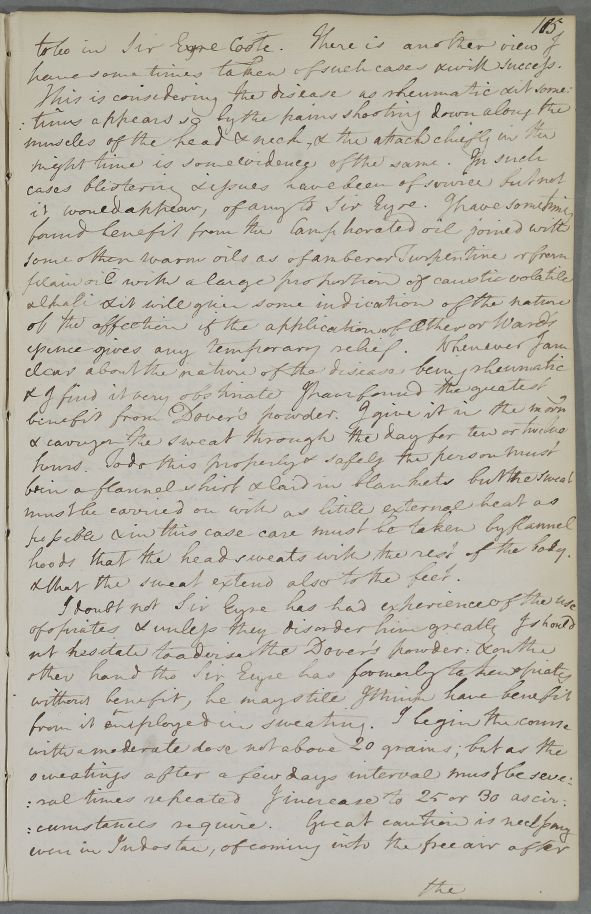 115
to be in Sir Eyre Coote. There is another view I
have sometimes taken of such cases & with success.
This is considering the disease as rheumatic & it some:
:times appears so by the pains shooting down along the
muscles of the head & neck, & the attack chiefly in the
night time is some evidence of the same. In such
cases blistering & issues have been of service but not
it would appear, of any to Sir Eyre. I have sometimes
found benefit from the Camphorated oil joined with
some other warm oils as of amber or Turpentine or from
plain oil with a large proportion of caustic volatile
alkali & it will give some indication of the nature
of the affection if the application of Æther or Ward's
essence gives any temporary relief. Whenever I am
clear about the nature of the disease being rheumatic
& I find it very obstinate I have found the greatest
benefit from Dover's powder. I give it in the morng
& carry on the sweat through the day for ten or twelve
hours. To do this properly & safely the person must
be in a flannel shirt & laid in blankets but the sweat
must be carried on with as little external heat as
possible & in this case care must be taken by flannel
hoods that the head sweats with the rest of the body.
& that the sweat extend also to the feet.
I doubt not Sir Eyre has had experience of the use
of opiates & unless they disorder him greatly I should
not hesitate to advise the Dover's powder: & on the
other hand tho Sir Eyre has formerly taken opiates
without benefit, he may still I think have benefit
from it employed in sweating. I begin the course
with a moderate dose not above 20 grains; but as the
sweatings after a few days interval must be seve:
:ral times repeated I increase to 25 or 30 as cir:
:cumstances require. Great caution is necessary
even in Indostan, of coming into the free air after
the